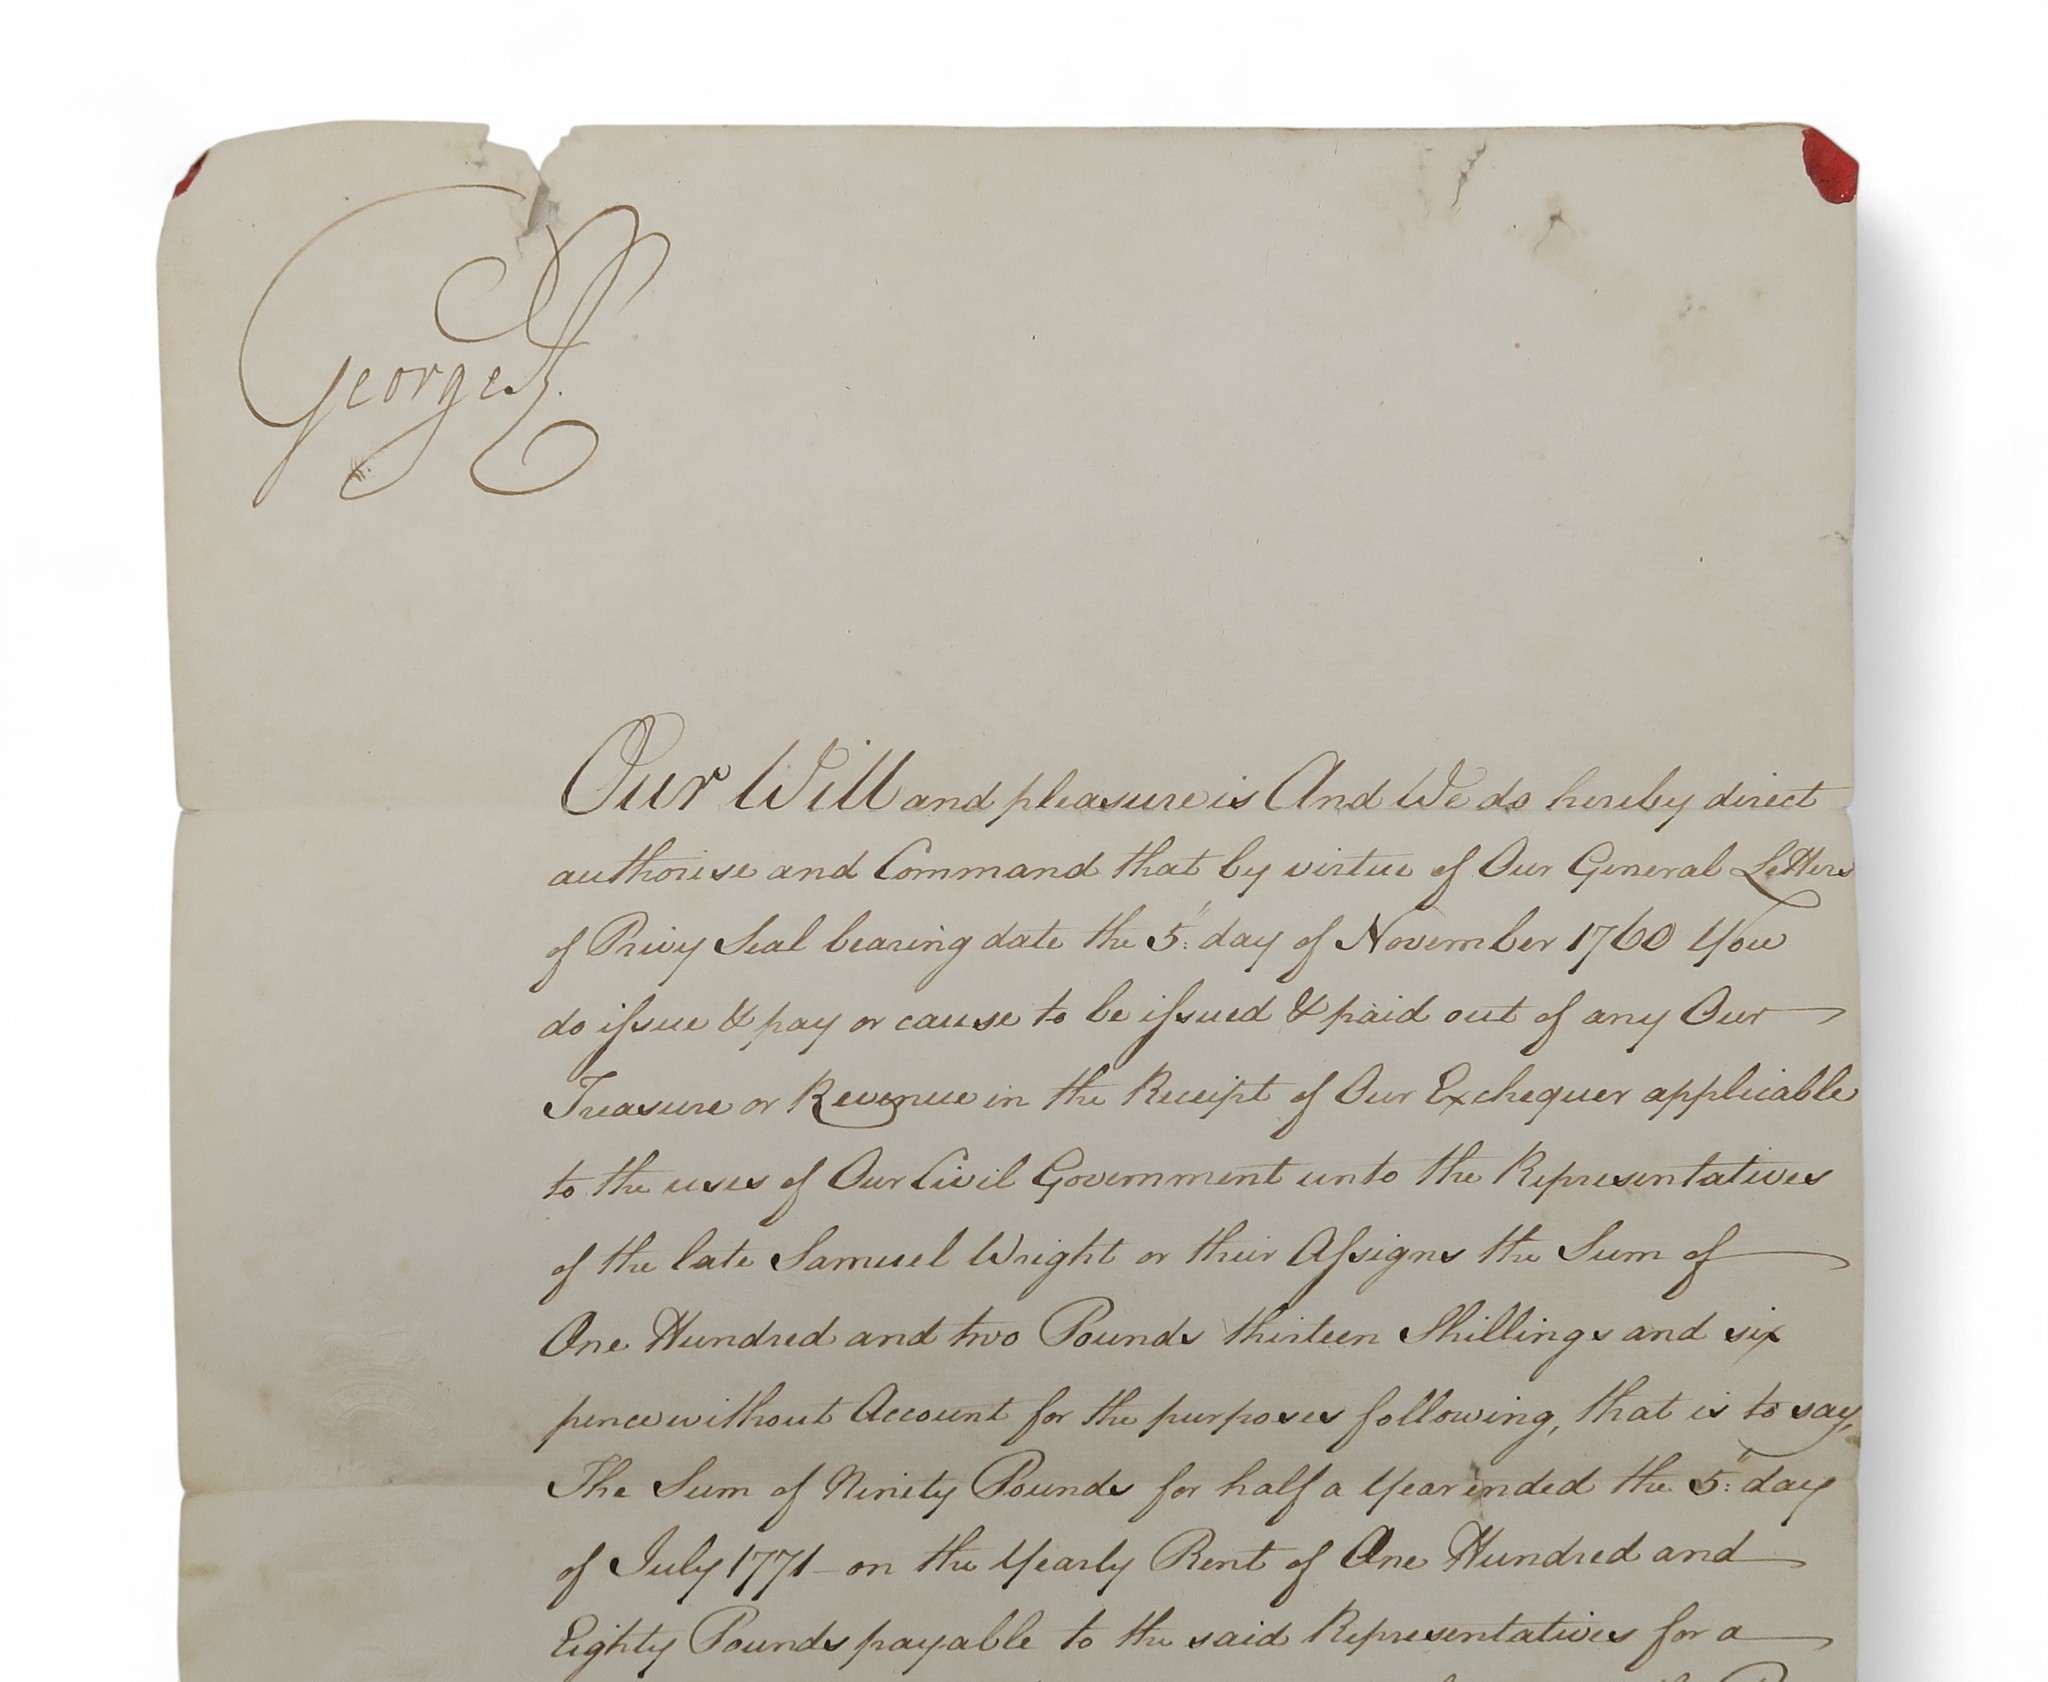 George R.
Our Will and pleasure is And We do hereby direct
authorise and Command that by virtue of Our General Letters
of Privy Seal bearing date the 5th: day of November 1760 You
do issue & pay or cause to be issued & paid out of any Our
Treasure or Revenue in the Receipt of Our Exchequer applicable
to the uses of Our Civil Government unto the Representatives
of the late Samuel Wright or their Assigns the Sum of
One Hundred and two Pounds thirteen Shillings and six
pence without Account for the purposes following, that is to say,
The Sum of Ninety Pounds for half a Year ended the 5th: day
of July 1771 - on the Yearly Rent of One Hundred and
Eighty Pounds payable to the said Representatives for a